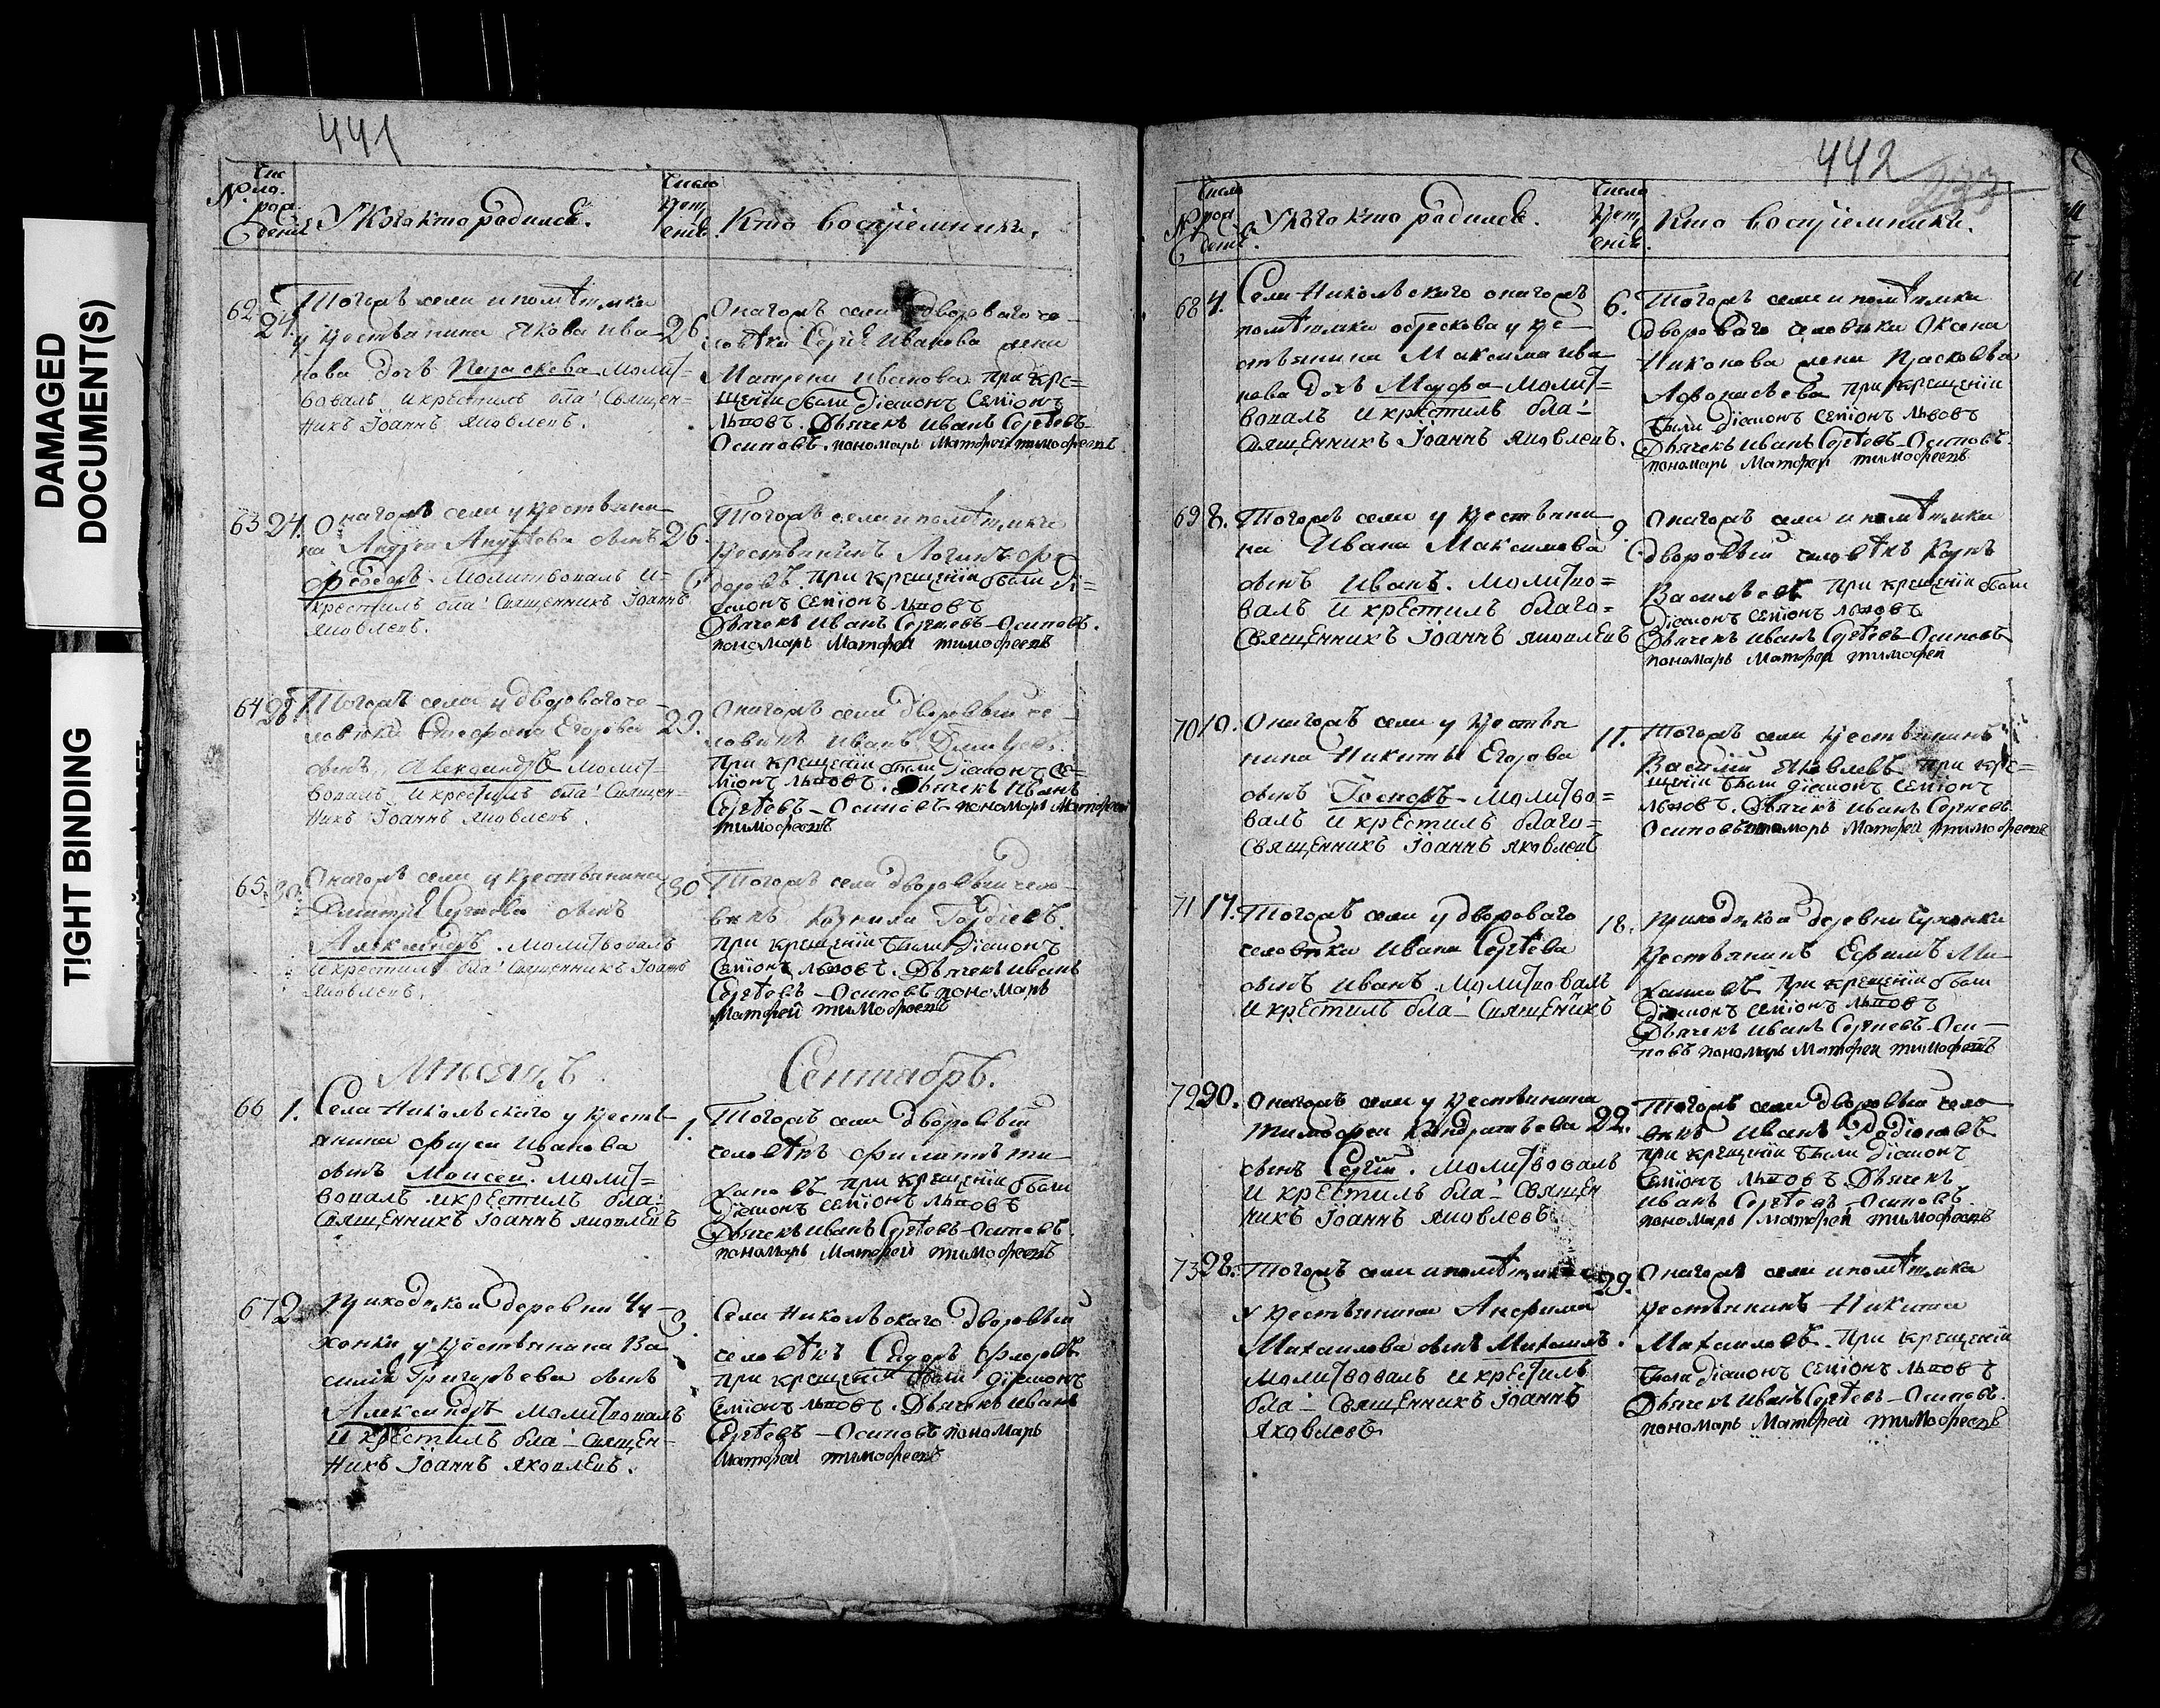 DAMAGED
DOCUMENT(S)
TIGHT BINDING
441
№
Число
рож
денія
У Кого кто родился.
Число
крещ
енія.
Кто воспріемники.
62
24.
Тогожъ села и помѣщика
у крестьянина Якова Ива
нова дочь Параскева молит=
вовалъ и крестилъ бла: Священ=
никъ Іоаннъ Яковлевъ.
26.
Онагожъ села дворового че
ловѣка Сергія Иванова жена
Матрена Иванова при кре=
щеніи были Діаконъ Семіонъ
Львовъ. Дьячекъ Иванъ Сергѣевъ
Осиповъ. пономарь Матфей тимофеевъ
63
24.
Онагожъ села у крестьяни
на Андрея Андрѣева сынъ
Феодоръ. Молитвовалъ и=
крестилъ бла: Священникъ Іоаннъ
Яковлевъ.
26.
Тогожъ села и помѣщика
крестьянинъ Логинъ Фе
доровъ. При крещеніи были ді=
аконъ Семіонъ Львовъ
Дьячекъ Иванъ Сергѣевъ Осиповъ.
пономарь Матфей тимофеевъ
64
28.
Тогожъ села у дворового че
ловѣка Стефана Егорова
сынъ Александръ молит=
вовалъ и крестилъ бла: Священ=
никъ Іоаннъ Яковлевъ.
29.
Онагожъ села дворовый че
ловѣкъ Иванъ
При крещеніи были Діаконъ Се=
міонъ Львовъ. Дьячекъ Иванъ
Сергѣевъ Осиповъ. пономарь Матфей
тимофеевъ
65.
30.
Онагожъ села у крестьянина
Дмитрія Сергѣева сынъ
Александръ. молитвовалъ
и крестилъ бла: Священникъ Іоаннъ
Яковлевъ.
30.
Тогожъ села дворовый чело
вѣкъ Корнила Гордіевъ.
при крещеніи были Діаконъ
Семіонъ Львовъ. Дьячекъ Иванъ
Сергѣевъ Осиповъ пономарь
Матфей тимофеевъ
Мѣсяцъ
Сентябрь.
66
1.
Села Никольскаго у кресть
янина Фирса Иванова
сынъ Моисей. молит=
вовалъ и крестилъ бла:
Священникъ Іоаннъ Яковлевъ
1.
Тогожъ села дворовый
человѣкъ Филатъ ти
хановъ при крещеніи были
Діаконъ Семіонъ Львовъ
Дьячекъ Иванъ Сергѣевъ Осиповъ.
пономарь Матфей тимофеевъ
67
2
Приходской деревни Чу
хонки у крестьянина Ва
силія Григорьева сынъ
Александръ молитвовалъ
и крестилъ бла: Священ=
никъ Іоаннъ Яковлевъ.
3.
Села Никольскаго дворовый
человѣкъ Сидоръ Флоровъ
при крещеніи были діаконъ
Семіонъ Львовъ. Дьячекъ Иванъ
Сергѣевъ Осиповъ пономарь
Матфей тимофеевъ
442
233
№
Число
рож
денія.
У Кого кто родился.
Число
крещ
еніе
Кто воспріемники.
68
4.
Села Никольскаго онагожъ
помѣщика обрескова у кре
стьянина Максима Ива
нова дочь Марфа молит=
вовалъ и крестилъ бла:
Священникъ Іоаннъ Яковлевъ.
6.
Тогожъ села и помѣщика
дворового человѣка Оксена
Никонова жена Прасковья
Афонасьева при крещеніи
были діаконъ Семіонъ Львовъ
Дьячекъ Иванъ Сергѣевъ Осиповъ.
пономарь Матфей тимофеевъ.
69
8.
Тогожъ села у крестьяни
на Ивана Максимова
сынъ Иванъ. молитво=
валъ и крестилъ благо=
Священникъ Іоаннъ Яковлевъ
9.
Онагожъ села и помѣщика
дворовый человѣкъ Карпъ
Васильевъ при крещеніи были
Діаконъ Семіонъ Львовъ
Дьячекъ Иванъ Сергѣевъ Осиповъ
пономарь Матфей тимофей
70
10.
Онагожъ села у крестья
нина Никиты Егорова
сынъ молитво=
валъ и крестилъ благо=
Священникъ Іоаннъ Яковлевъ
11.
Тогожъ села крестьянинъ
Василій Яковлевъ при кре=
щеніи были діаконъ Семіонъ
Львовъ. Дьячекъ Иванъ Сергѣевъ
Осиповъ пономарь Матфей тимофеевъ
71
17.
Тогожъ села у дворового
человѣка Ивана Сергѣева
сынъ Иванъ молитвовалъ
и крестилъ бла: Священникъ
18.
приходской деревни Чухонки
крестьянинъ Ефимъ Ми
хаиловъ при крещеніи были
діаконъ Семіонъ Львовъ
Дьячекъ Иванъ Сергѣевъ Оси
повъ пономарь Матфей тимофеевъ
72
20.
Онагожъ села у крестьянина
Тимофея Кондратьева
сынъ Сергій. молитвовалъ
и крестилъ бла: Священ
никъ Іоаннъ Яковлевъ
22.
Тогожъ села дворовый чело
вѣкъ Иванъ Родіоновъ
при крещеніи были Діаконъ
Семіонъ Львовъ Дьячекъ
Иванъ Сергѣевъ Осиповъ
пономарь Матфей тимофеевъ
73
28.
Тогожъ села и помѣщика
у крестьянина Анфима
Михаилова сынъ Михаилъ.
молитвовалъ и крестилъ
бла: Священникъ Іоаннъ
Яковлевъ
29.
Онагожъ села и помѣщика
крестьянинъ Никита
Михаиловъ. При крещеніи
были діаконъ Семіонъ Львовъ
Дьячекъ Иванъ Сергѣевъ Осиповъ.
пономарь Матфей тимофеевъ